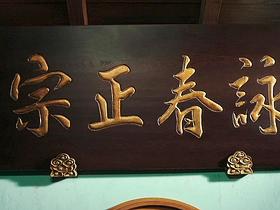 詠春正宗